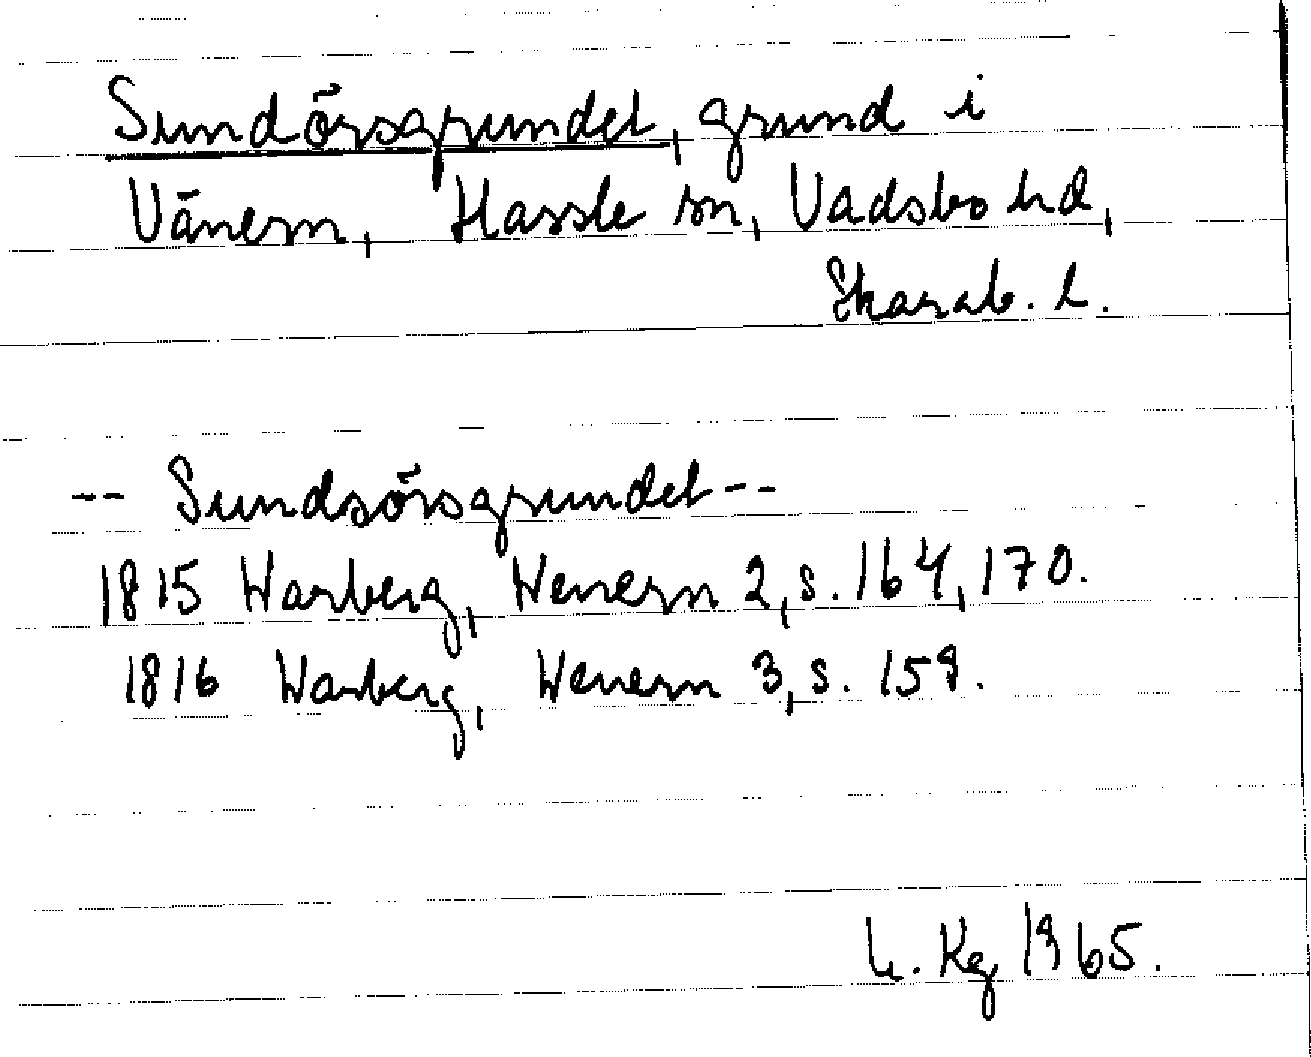 Sundörsgrundet, grund i
Vänern, Hassle sn, Vadsbo hd,
Skarab. l.
-- Sundsörsgrundet --
1815 Warberg, Wenern 2, s. 164, 170.
1816 Warberg, Wenern 3, s. 158.
Kg 1965.